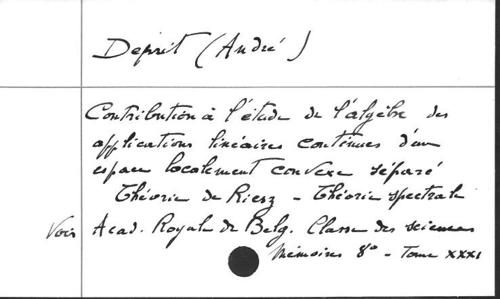 Deprit (André)
Contribution à l'étude de l'algèbre des
applications linéaires continues d'un
espace localement convexe séparé
Théorie de Riesz - Théorie spectrale
Voir Acad. Royale de Belg. Classe des sciences
Mémoires 8° - Tome XXXI